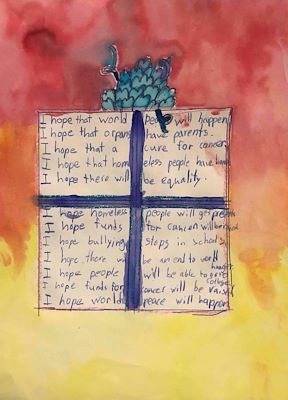 I hope that world peace will happen
I hope that orpans have parents.
I hope that a cure for cancer
I hope that homeless people have
I hope there will be equality.
I hope homeless people will get
I hope funds for cancer will be
I hope bullying stops in school
I hope there will be an end to world
hunger
I hope people will be able to go to
college
I hope funds for cancer will be raised
I hope world peace will happen